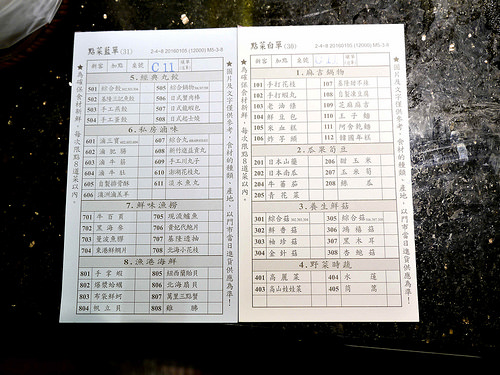 點菜藍單(31)
2-4~8 20160105 (12000) M5.3-8
新客 加點 桌號 C11
5.經典丸餃
501 綜合餃
505 綜合鍋物
502 基隆三記魚餃
506 日式蟹肉棒
503 手工燕餃
507 日式龍蝦包
504 手工蛋餃
508 日式起士燒
6.私房滷味
601 滷三寶
607 綜合丸
602 滷肥腸
608 新竹遊豆貢丸
603 滷牛筋
609 手工川丸子
604 滷牛肚
610 澎湖花枝丸
605 自製脆骨酥
611 淡水魚丸
606 澳洲滷羊羊
7.鮮味漁撈
701 牛百頁
705 現流鱸魚
702 黑海參
706 貴妃代鮑片
703 曼波魚膠
707 基隆透抽
704 東港鮮鯛片
708 北海小花枝
8.漁港海鮮
801 手掌蝦
805 紐西蘭貽貝
802 爆漿蛤蠣
806 北海扇貝
803 布袋鮮蚵
807 萬里三點蟹
804 帆立貝
808 雞腸
★為確保食材新鮮，每次限點8道菜以內。
★圖片及文字僅供參考，食材的種類、產地，以門市當日進貨供應為準！
點菜白單(38)
2-4~8 20160105 (12000) M5.3-8
新客 加點 桌號
1.麻吉鍋物
101 手打花枝
107 基隆甜不辣
102 手打蝦丸
108 自製凍豆腐
103 老油條
109 芝麻麻吉
104 鮮豆包
110 王子麵
105 米血糕
111 阿舍乾麵
106 炸芋頭
112 韓國年糕
2.瓜果筍豆
201 日本山藥
206 甜玉米
202 日本南瓜
207 玉米筍
204 牛蕃茄
208 絲瓜
205 青花菜
3.養生鮮菇
301 綜合菇
305 綜合菇
302 鮮香菇
306 鴻禧菇
303 袖珍菇
307 黑木耳
304 金針菇
308 杏鮑菇
4.野菜時蔬
401 高麗菜
404 水蓮
403 高山娃娃菜
405 茼蒿
★為確保食材新鮮，每次限點8道菜以內。
★圖片及文字僅供參考，食材的種類、產地，以門市當日進貨供應為準！